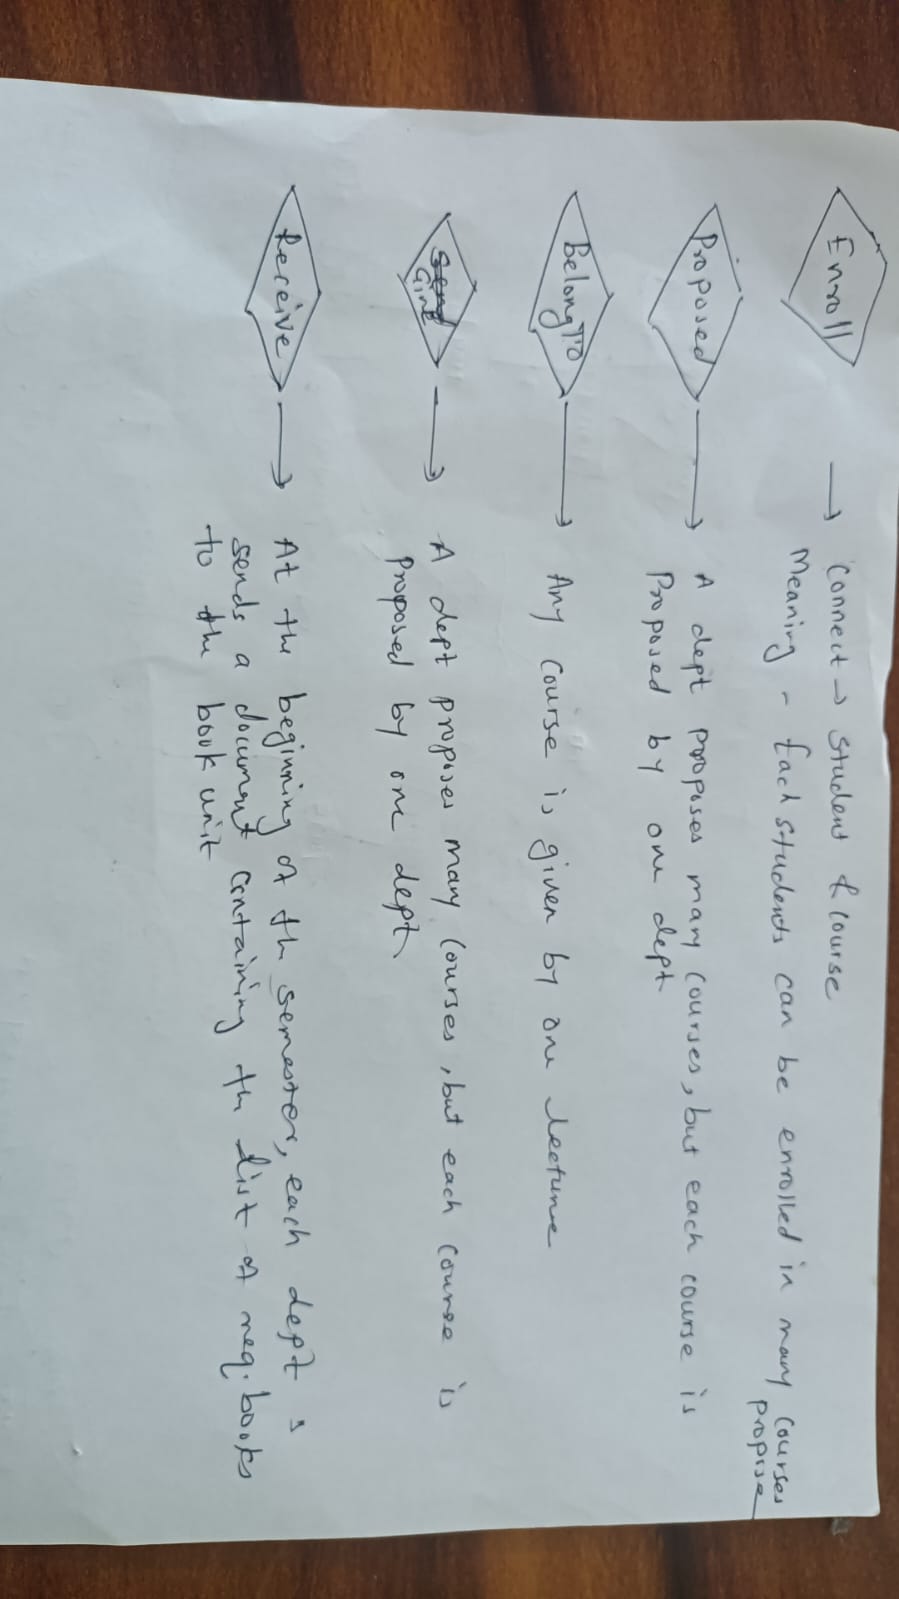 Enroll → Connect → Student & Course
Meaning - Each students can be enrolled in many Courses
propose
Proposed → A dept proposes many courses, but each course is
Proposed by one dept
BelongTo → Any course is given by one Lecture
Give → A dept proposes many Courses, but each Course is
proposed by one dept.
Receive → At the beginning of the semester, each dept
sends a document containing the list of req. books
to the book unit